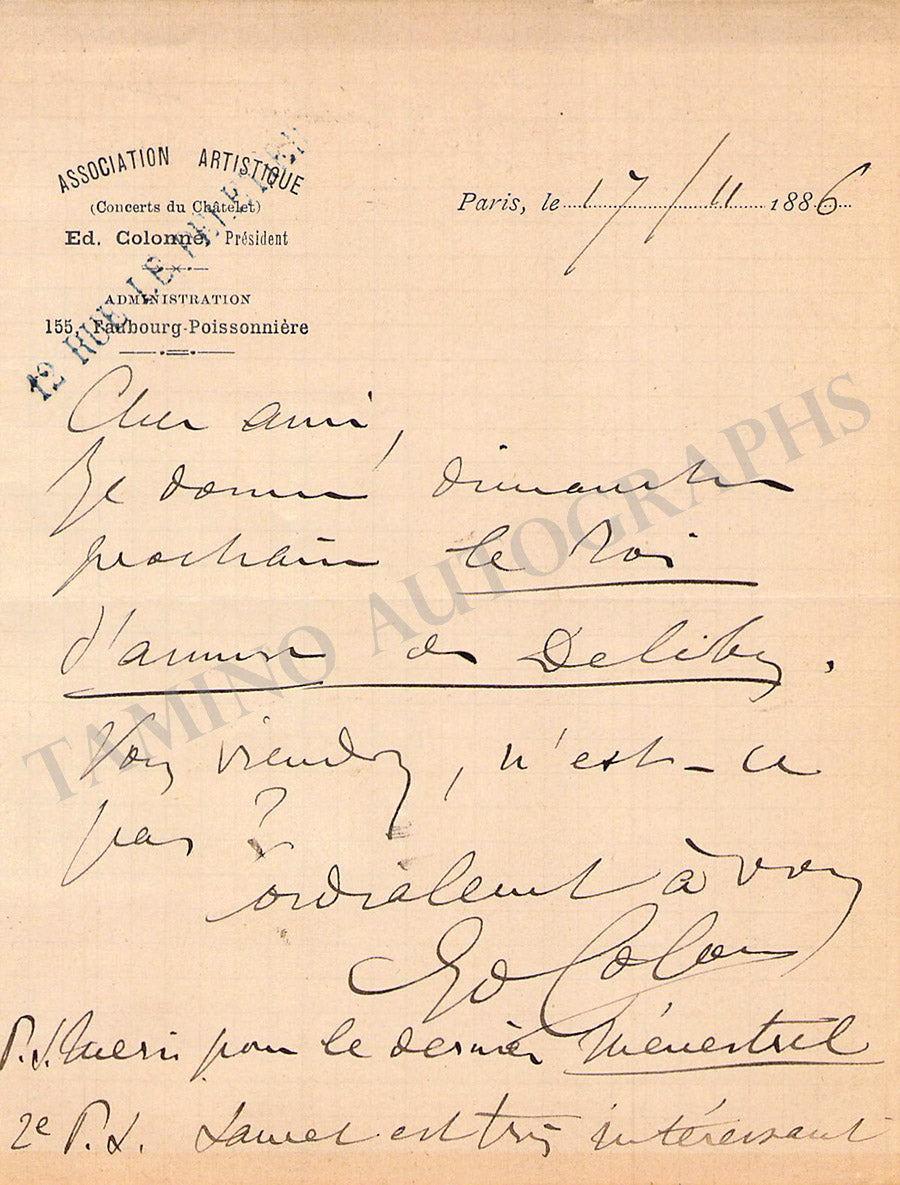 ASSOCIATION ARTISTIQUE
(Concerts du Châtelet)
Ed. Colonne, Président
ADMINISTRATION
155, Faubourg-Poissonnière
12 RUE LE PELETIER
Paris, le 17/11 1886
Cher ami,
Je donne dimanche
prochain le Roi
s'amuse de Delibes.
Vous viendrez, n'est-ce
pas ?
Cordialement à vous
Ed Colonne
P.S. Merci pour le dernier Ménestrel
2e P.S. est très intéressant
TAMINO AUTOGRAPHS